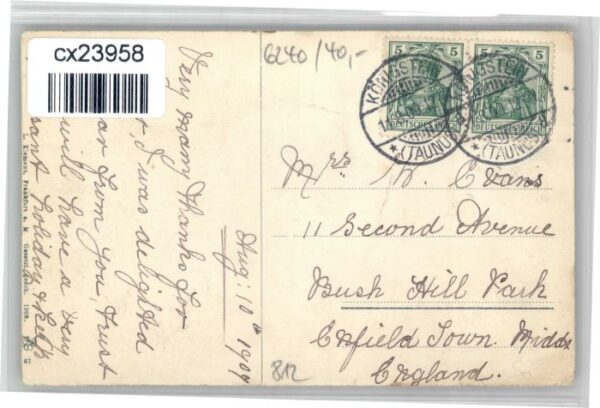 cx23958
6240/40,-
Very many thanks for
I was delighted
ar from you, trust
will have a very
sant holiday &
Aug: 10th 1909
L. Klement, Frankfurt a. M. 1909.
67
5 5
5 5
DEUTSCHES REICH
DEUTSCHES REICH
KÖNIGSTEIN
*(TAUNUS)
KÖNIGSTEIN
*(TAUNUS)
Mrs Evans
11 Second Avenue
Bush Hill Park
Enfield Town. Middx
England.
812